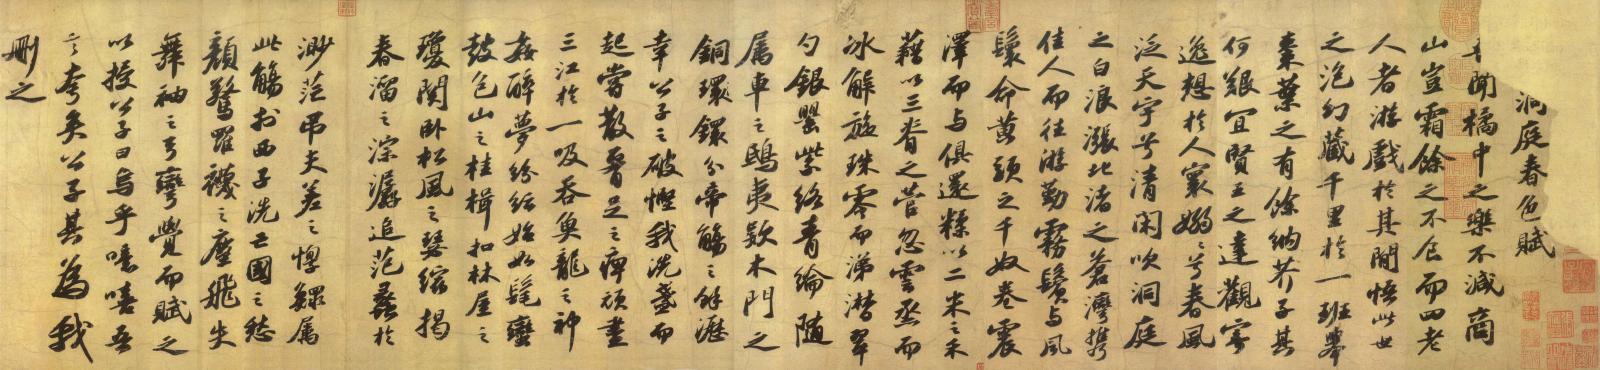 洞庭春色賦
吾聞橘中之樂不減商
山豈霜餘之不食而四老
人者游戲於其間悟此世
之泡幻藏千里於一班舉
棗葉之有餘納芥子其
何艱宜賢王之達觀寄
逸想於人寰嫋〻兮春風
泛天宇兮清閑吹洞庭
之白浪漲北渚之蒼灣攜
佳人而往游勤霧鬢與風
鬟命黃頭之千奴卷震
澤而與俱還糅以二米之禾
藉以三脊之菅忽雲烝而
冰解旋珠零而涕潸翠
勺銀罌紫絡青綸隨
屬車之鴟夷款木門之
銅環鐶分帝觴之餘瀝
幸公子之破慳我洗盞而
起嘗散腰足之痺頑盡
三江於一吸吞魚龍之神
姦醉夢紛紜始如髦蠻
鼓包山之桂楫扣林屋之
瓊關臥松風之瑟縮揭
春溜之淙潺追范蠡於
渺茫弔夫差之惸鰥屬
此觴於西子洗亡國之愁
顏驚羅襪之塵飛失
舞袖之弓彎覺而賦之
以授公子曰烏乎噫嘻吾
言夸矣公子其為我
刪之